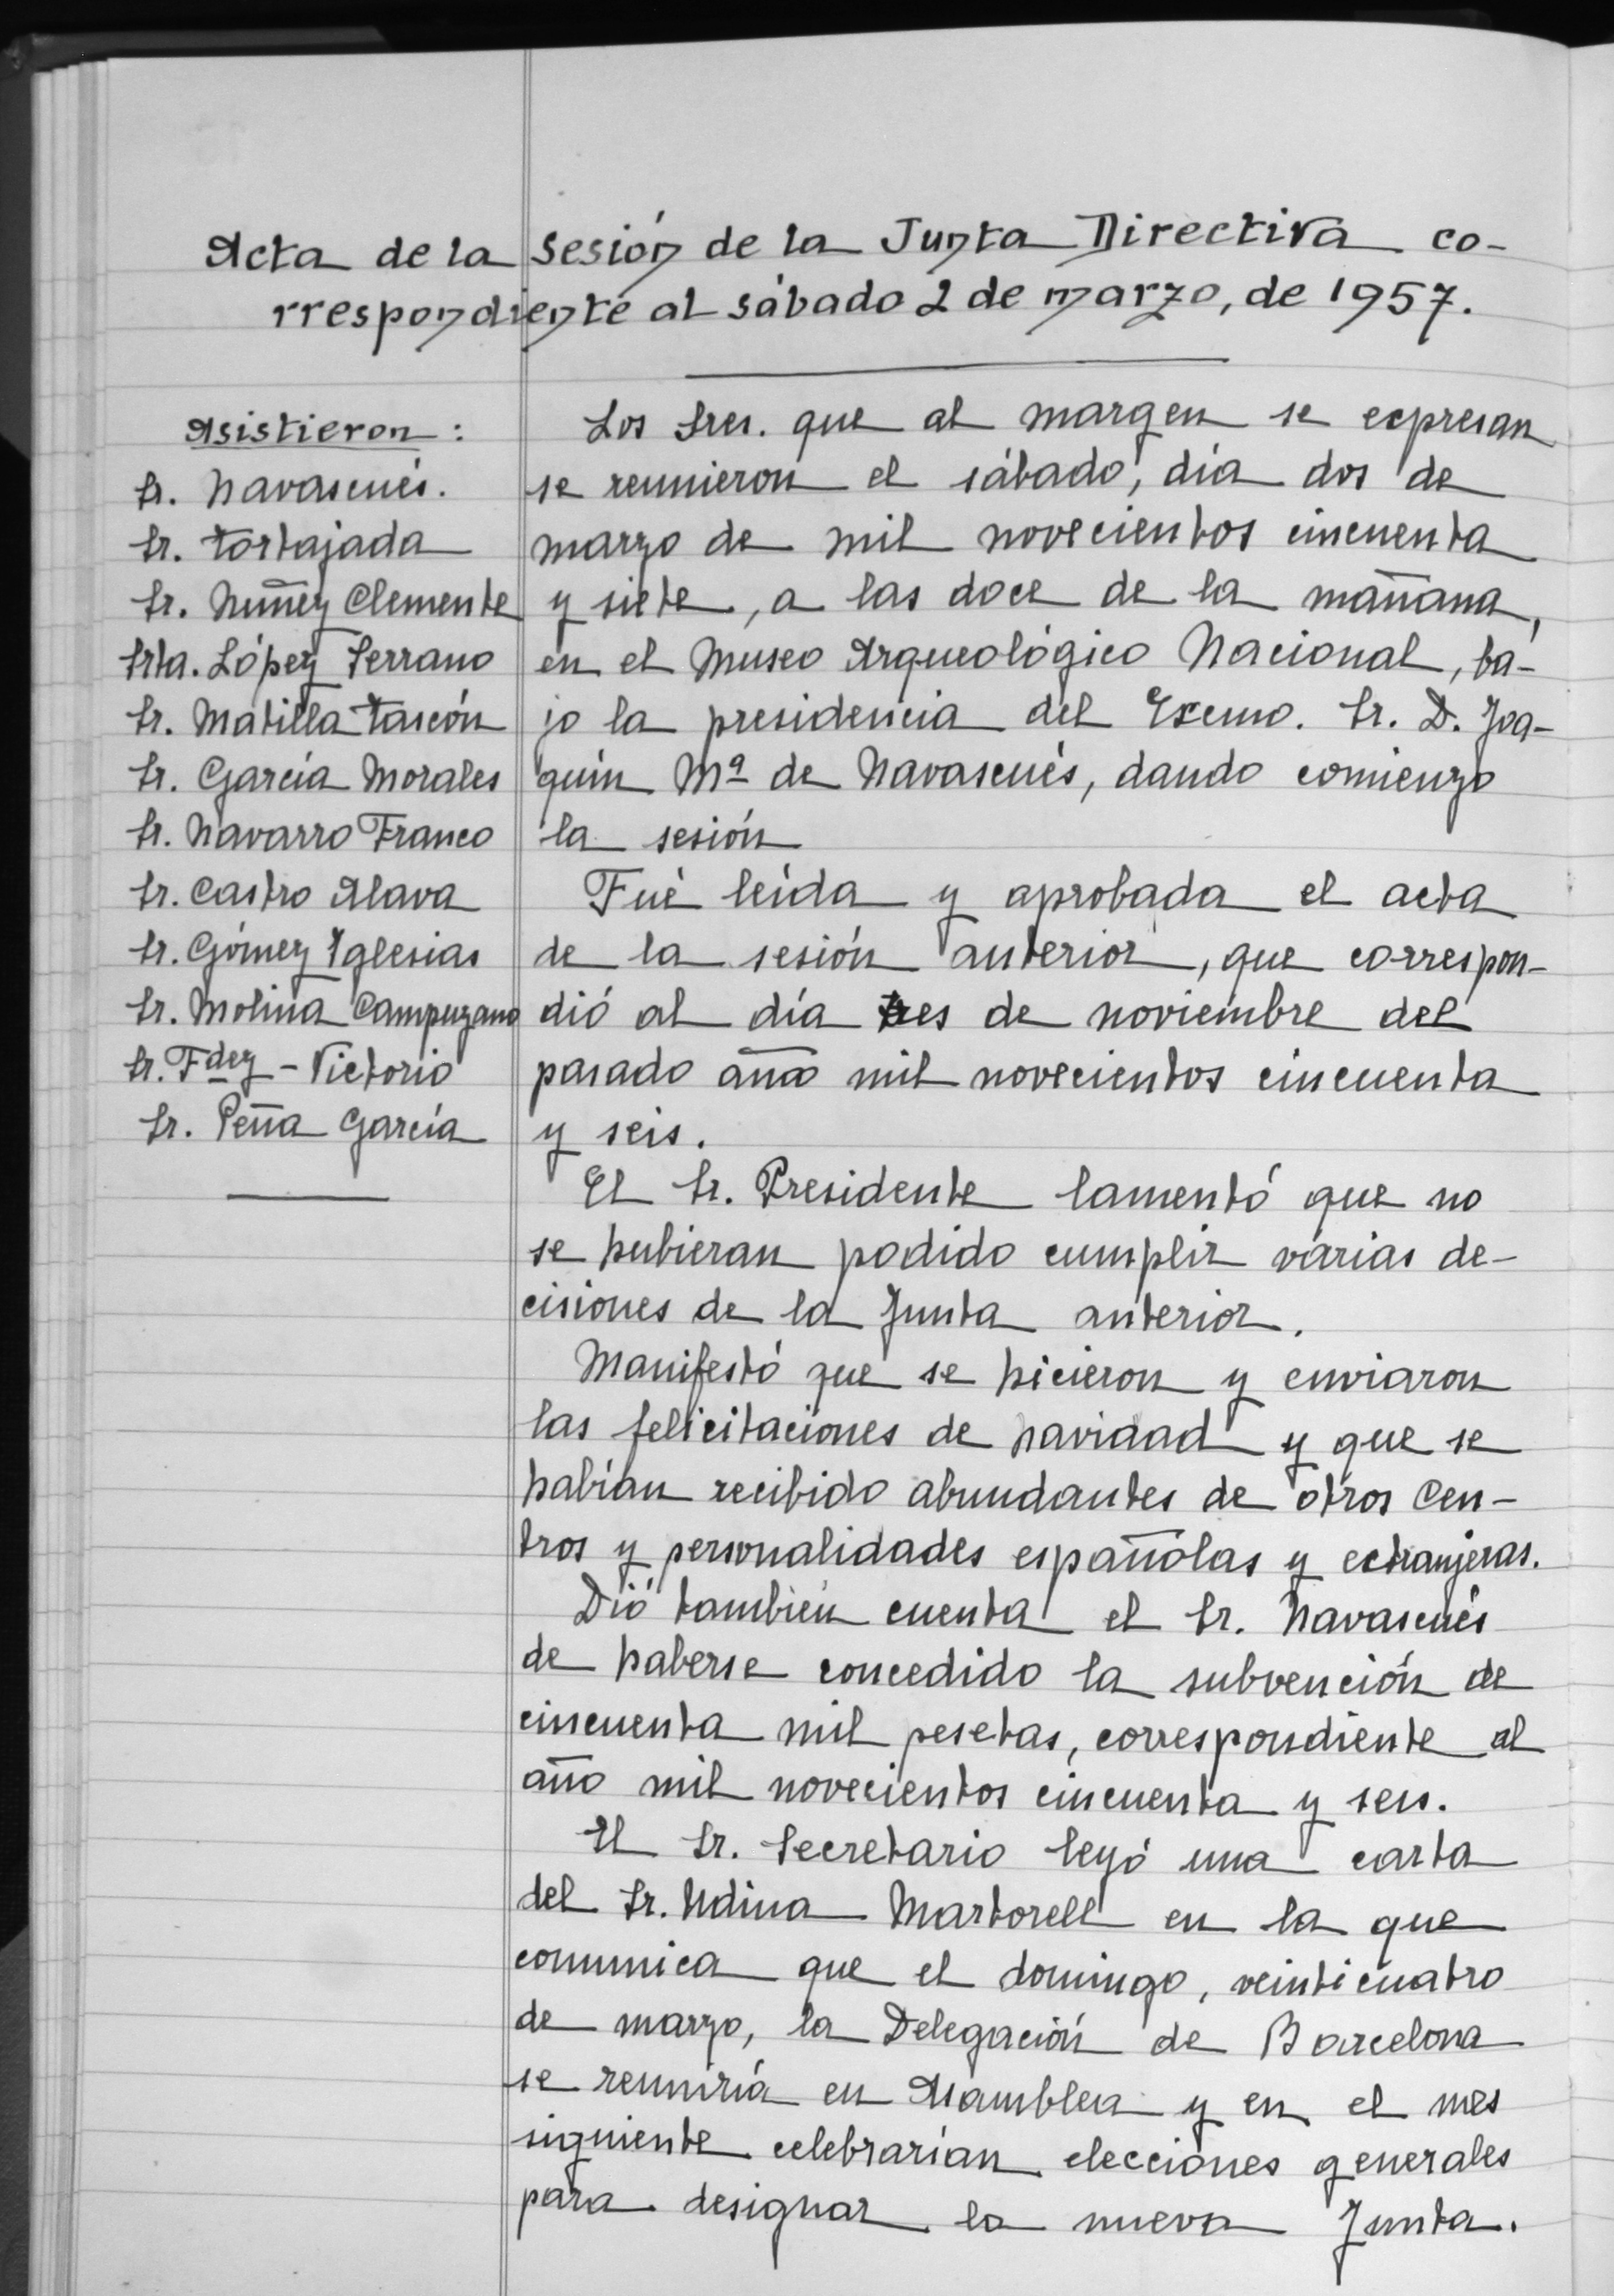 Acta de la sesión de la Junta Directiva co-
rrespondiente al sábado 2 de marzo, de 1957.
Asistieron:
Sr. Navascués.
Sr. Tortajada
Sr. Nuñez Clemente
Srta. López Serrano
Sr. Matilla Tascón
Sr. García Morales
Sr. Navarro Franco
Sr. Castro Alava
Sr. Gómez Iglesias
Sr. Molina Campuzano
Sr. Fdez - Victorio
Sr. Peña García
Los Sres. que al margen se expresan
se reunieron el sábado, día dos de
marzo de mil novecientos cincuenta
y siete, a las doce de la mañana,
en el Museo Arqueológico Nacional, ba-
jo la presidencia del Excmo. Sr. D. Joa-
quín Mª de Navascués, dando comienzo
la sesión
Fué leída y aprobada el acta
de la sesión anterior, que correspon-
dió al día tres de noviembre del
pasado año mil novecientos cincuenta
y seis.
El Sr. Presidente lamentó que no
se hubieran podido cumplir várias de-
cisiones de la Junta anterior.
Manifestó que se hicieron y enviaron
las felicitaciones de navidad y que se
habían recibido abundantes de otros Cen-
tros y personalidades españolas y extranjeras.
Dió también cuenta el Sr. Navascués
de haberse concedido la subvención de
cincuenta mil pesetas, correspondiente al
año mil novecientos cincuenta y seis.
El Sr. Secretario leyó una carta
del Sr. Udina Martorell en la que
comunica que el domingo, veinticuatro
de marzo, la Delegación de Barcelona
se reuniría en Asamblea y en el mes
siguiente celebrarían elecciones generales
para designar la nueva Junta.